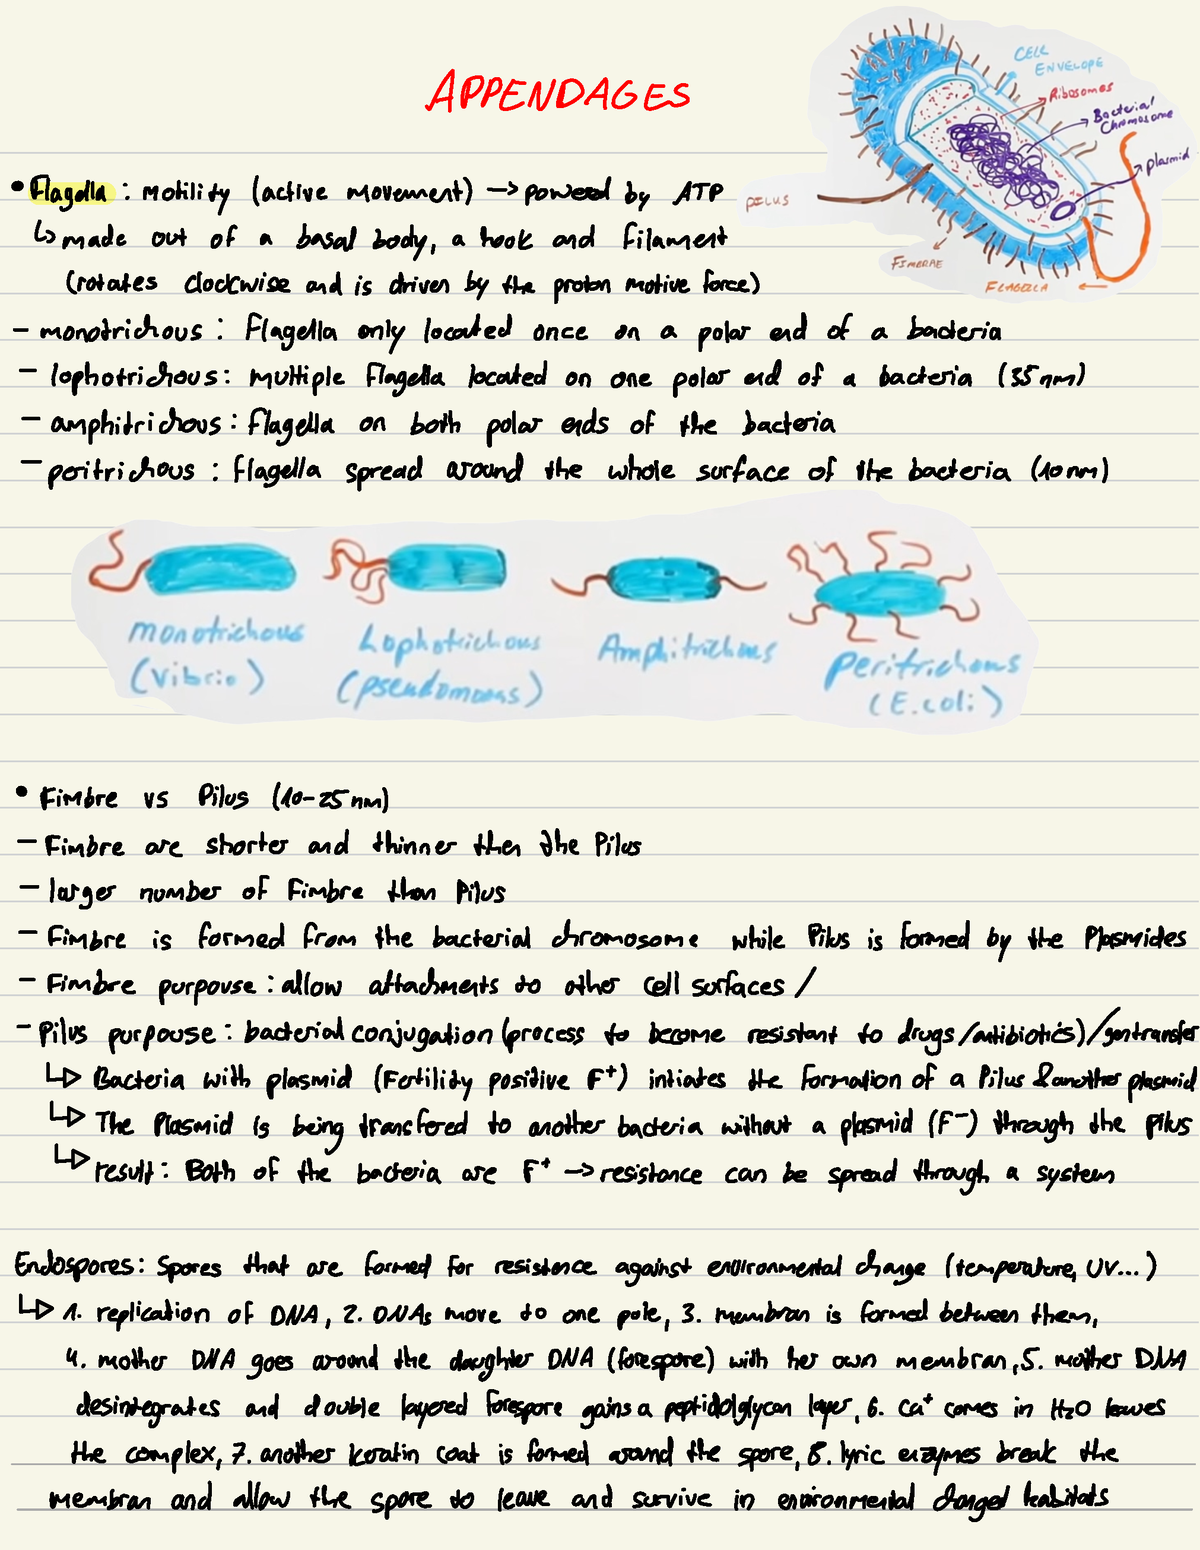 APPENDAGES
CELL
ENVELOPE
Ribosomes
Bacterial
Chromosome
plasmid
PILUS
FIMBRAE
FLAGELLA
• Flagella : motility (active movement) → powered by ATP
↳ made out of a basal body, a hook and filament
(rotates clockwise and is driven by the proton motive force)
- monotrichous : Flagella only located once on a polar end of a bacteria
- lophotrichous : multiple Flagella located on one polar end of a bacteria (35nm)
- amphitrichous : Flagella on both polar ends of the bacteria
- peritrichous : flagella spread around the whole surface of the bacteria (10nm)
monotrichous
(Vibrio)
Lophotrichous
(pseudomonas)
Amphitrichous
peritrichous
(E.coli)
• Fimbre vs Pilus (10-25nm)
- Fimbre are shorter and thinner then the Pilus
- larger number of Fimbre than Pilus
- Fimbre is formed from the bacterial chromosome while Pilus is formed by the Plasmides
- Fimbre purpouse : allow attachments to other cell surfaces /
- Pilus purpouse : bacterial conjugation (process to become resistant to drugs/antibiotics)/gentransfer
↳ Bacteria with plasmid (Fertility positive F⁺) intiates the formation of a Pilus & another plasmid
↳ The Plasmid is being transfered to another bacteria without a plasmid (F⁻) through the pilus
↳ result : Both of the bacteria are F⁺ → resistance can be spread through a system
Endospores : Spores that are formed for resistence against environmental change (temperature, UV...)
↳ 1. replication of DNA, 2. DNAs move to one pole, 3. membran is formed between them,
4. mother DNA goes around the daughter DNA (forespore) with her own membran, 5. mother DNA
desintegrates and double layered forespore gains a peptidolglycan layer, 6. Ca⁺ comes in H2O leaves
the complex, 7. another keratin coat is formed around the spore, 8. lyric enzymes break the
membran and allow the spore to leave and survive in environmental changed habitats